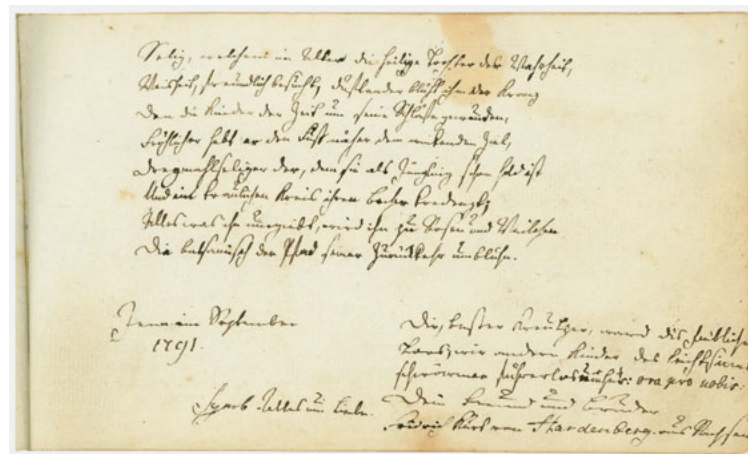 Selig, welchem im Alter die heilige Tochter der Wahrheit,
Weisheit, freundlich besucht, duftender blüht ihm der Kranz
Den die Kinder der Zeit um seine Schläfe gewunden,
Fröhlicher hebt er den Fuß näher dem winkenden Ziel,
Dreymahlseliger der, dem sie als Jüngling schon hold ist
Und im traulichen Kreis ihren Becher kredenzt,
Alles was ihn umgiebt, wird ihm zu Rosen und Veilchen
Die balsamisch den Pfad seiner Zurückkehr umblühn.
Jena im September
1791.
Dir, bester Kreutzer, ward dis
Loos; wir andern Kinder des Leichtsinns
schwärmen führerlos umher: ora pro nobis.
Symb. Alles um Liebe.
Dein Freund und Bruder
Fridrich von Hardenberg. aus